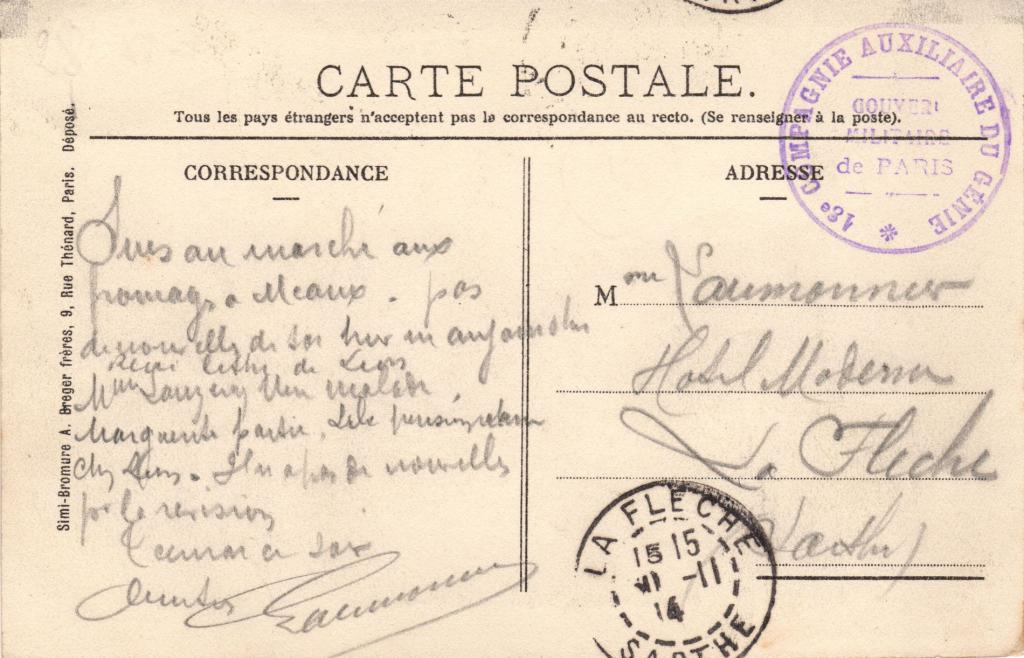 CARTE POSTALE.
Tous les pays étrangers n'acceptent pas la correspondance au recto. (Se renseigner à la poste).
18e COMPAGNIE AUXILIAIRE DU GÉNIE
GOUVERt
MILITAIRE
de PARIS
Simi-Bromure A. Breger frères, 9, Rue Thénard, Paris. Déposé.
CORRESPONDANCE
au marché aux
fromages à Meaux. pas
de nouvelles de toi hier ni aujourd'hui
Reçu lettre de
Mme malade
Marguerite partie.
chez pas de nouvelles
pr la révision
Laumonnier
ADRESSE
Mme Laumonnier
Hotel Moderne
La Fleche
(Sarthe)
LA FLECHE
15 15
-11
14
SARTHE